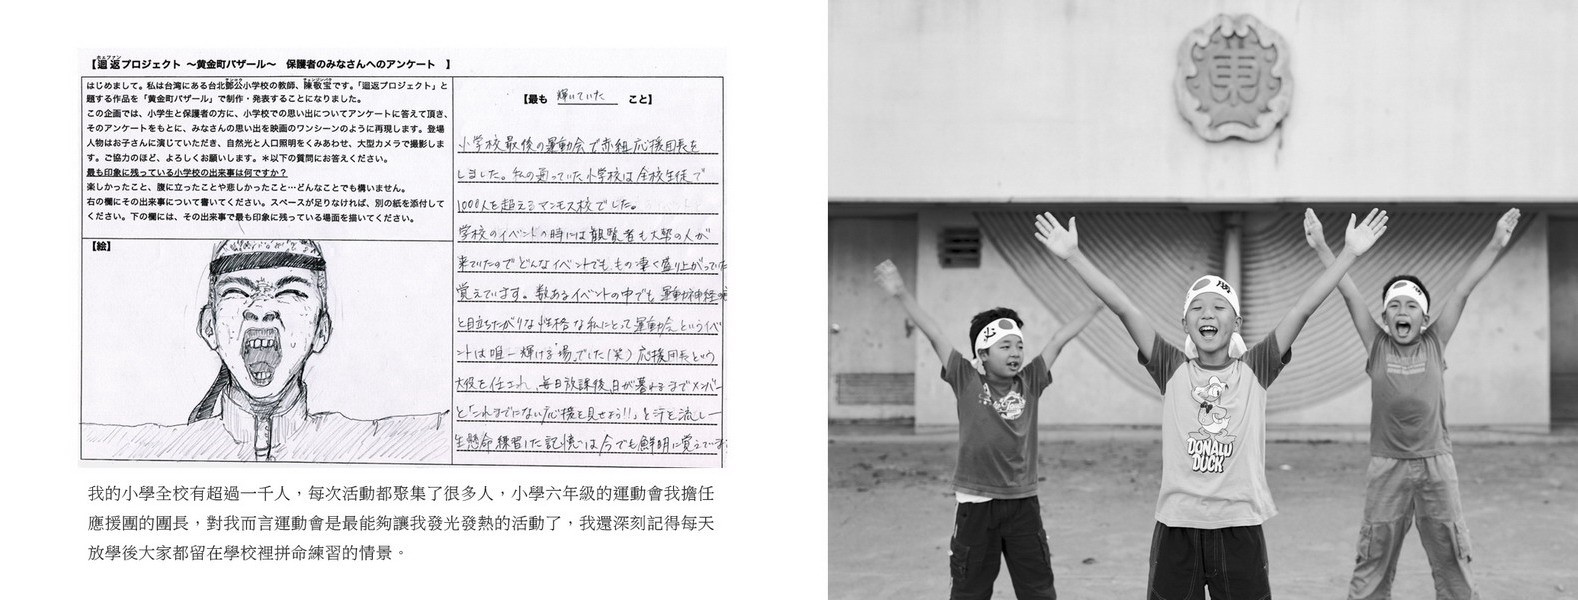 【迴返プロジェクト ～黄金町バザール～　保護者のみなさんへのアンケート　】
はじめまして。私は台湾にある台北鄧公小学校の教師、陳敬宝です。「迴返プロジェクト」と
題する作品を「黄金町バザール」で制作・発表することになりました。
この企画では、小学生と保護者の方に、小学校での思い出についてアンケートに答えて頂き、
そのアンケートをもとに、みなさんの思い出を映画のワンシーンのように再現します。登場
人物はお子さんに演じていただき、自然光と人口照明をくみあわせ、大型カメラで撮影しま
す。ご協力のほど、よろしくお願いします。＊以下の質問にお答えください。
最も印象に残っている小学校の出来事は何ですか？
楽しかったこと、腹に立ったことや悲しかったこと…どんなことでも構いません。
右の欄にその出来事について書いてください。スペースが足りなければ、別の紙を添付して
ください。下の欄には、その出来事で最も印象に残っている場面を描いてください。
【絵】
【最も　輝いていた　こと】
小学校最後の運動会で赤組応援団長を
しました。私の通っていた小学校は全校生徒で
1000人を超えるマンモス校でした。
学校のイベントの時には観覧者も大勢の人が
来ていたのでどんなイベントでももの凄く盛り上がっていた
覚えています。数あるイベントの中でも運動神経
と目立ちたがりな性格な私にとって運動会というイベ
ントは唯一輝ける場でした(笑) 応援団長という
大役を任され、毎日放課後、日が暮れるまでメンバー
と「これまでにない応援を見せよう!!」と汗を流し一
生懸命練習した記憶は今でも鮮明に覚えていま
我的小學全校有超過一千人，每次活動都聚集了很多人，小學六年級的運動會我擔任
應援團的團長，對我而言運動會是最能夠讓我發光發熱的活動了，我還深刻記得每天
放學後大家都留在學校裡拼命練習的情景。
勝
DONALD
DUCK